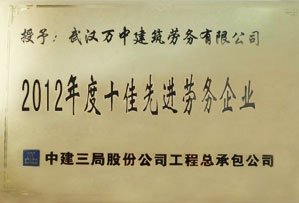 授予：武汉万中建筑劳务有限公司
2012年度十佳先进劳务企业
中建三局股份公司工程总承包公司